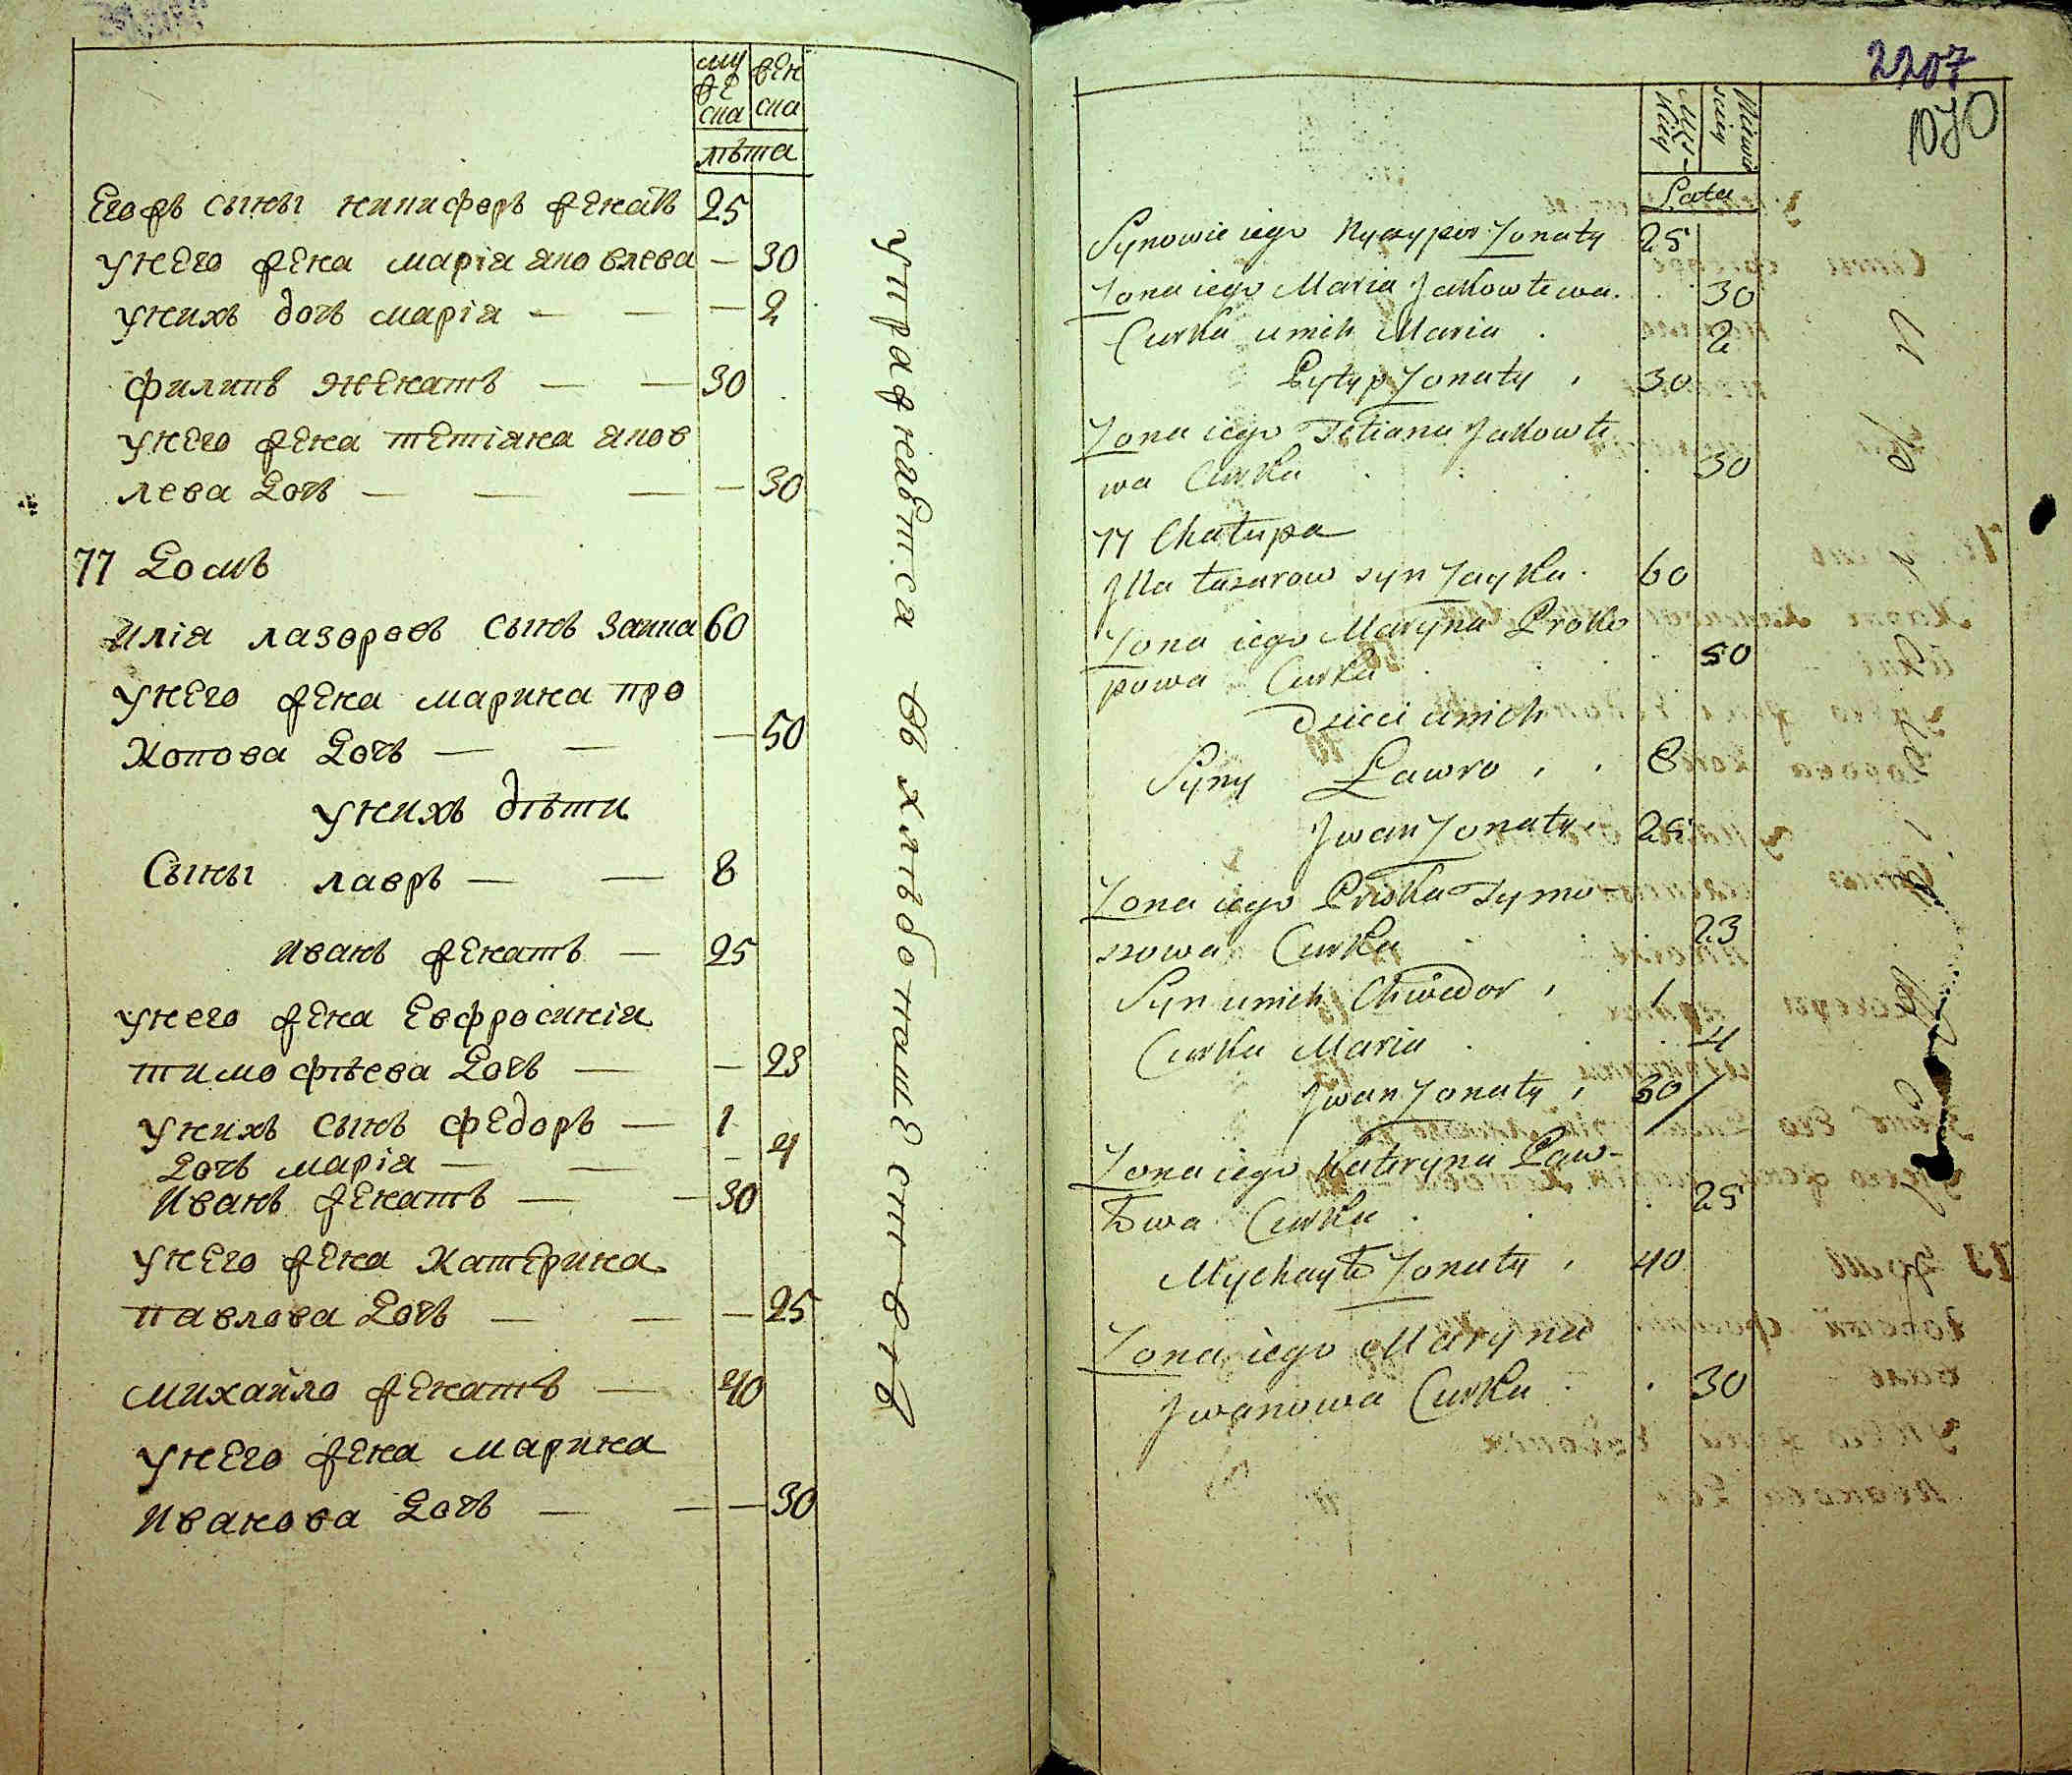 муже
ска
жен
ска
лѣта
Егоръ сыны никифоръ женатъ 25
унего жена марія яковлева — 30
унихъ дочь марія — — — 2
филипъ женатъ — — 30
унего жена тетіана яков
лева дочь — — — — 30
77 домъ
илія лазоровъ сынъ заика 60
унего жена марина про
копова дочь — — — 50
унихъ дѣти
Сыны лавръ — — 8
иванъ женатъ — 25
унего жена Евфросинія
тимофѣева дочь — — 23
унихъ сынъ федоръ — 1
дочь марія — — — 4
иванъ женатъ — — 30
унего жена катерина
павлова дочь — — — 25
михайло женатъ — 40
унего жена марина
иванова дочь — — — 30
упражняѣтся въ хлѣбопашествѣ
2207
1070
Męz-
kiey
Zens
kiey
Lata
Synowie iego Nyczypor Zonaty 25
Zona iego Maria Jakowlewa . . 30
Curka unich Maria . . 2
Pylyp Zonaty . 30
Zona iego Tetiana Jakowle
wa Curka . . . . 30
77 Chałupa
Jlla Łazarow syn Zayka . 60
Zona iego Maryna Proko
powa Curka . . . 50
Dzieci unich
Syny Lawro . . 8
Jwan Zonaty . 25
Zona iego Priska Tymo-
szowa Curka . . . 23
Syn unich Chwedor . 1
Curka Maria . . . 4
Jwan Zonaty . 30
Zona iego Kateryna Paw-
łowa Curka . . . 25
Mychayło Zonaty . 40
Zona iego Maryna
Jwanowa Curka . . 30